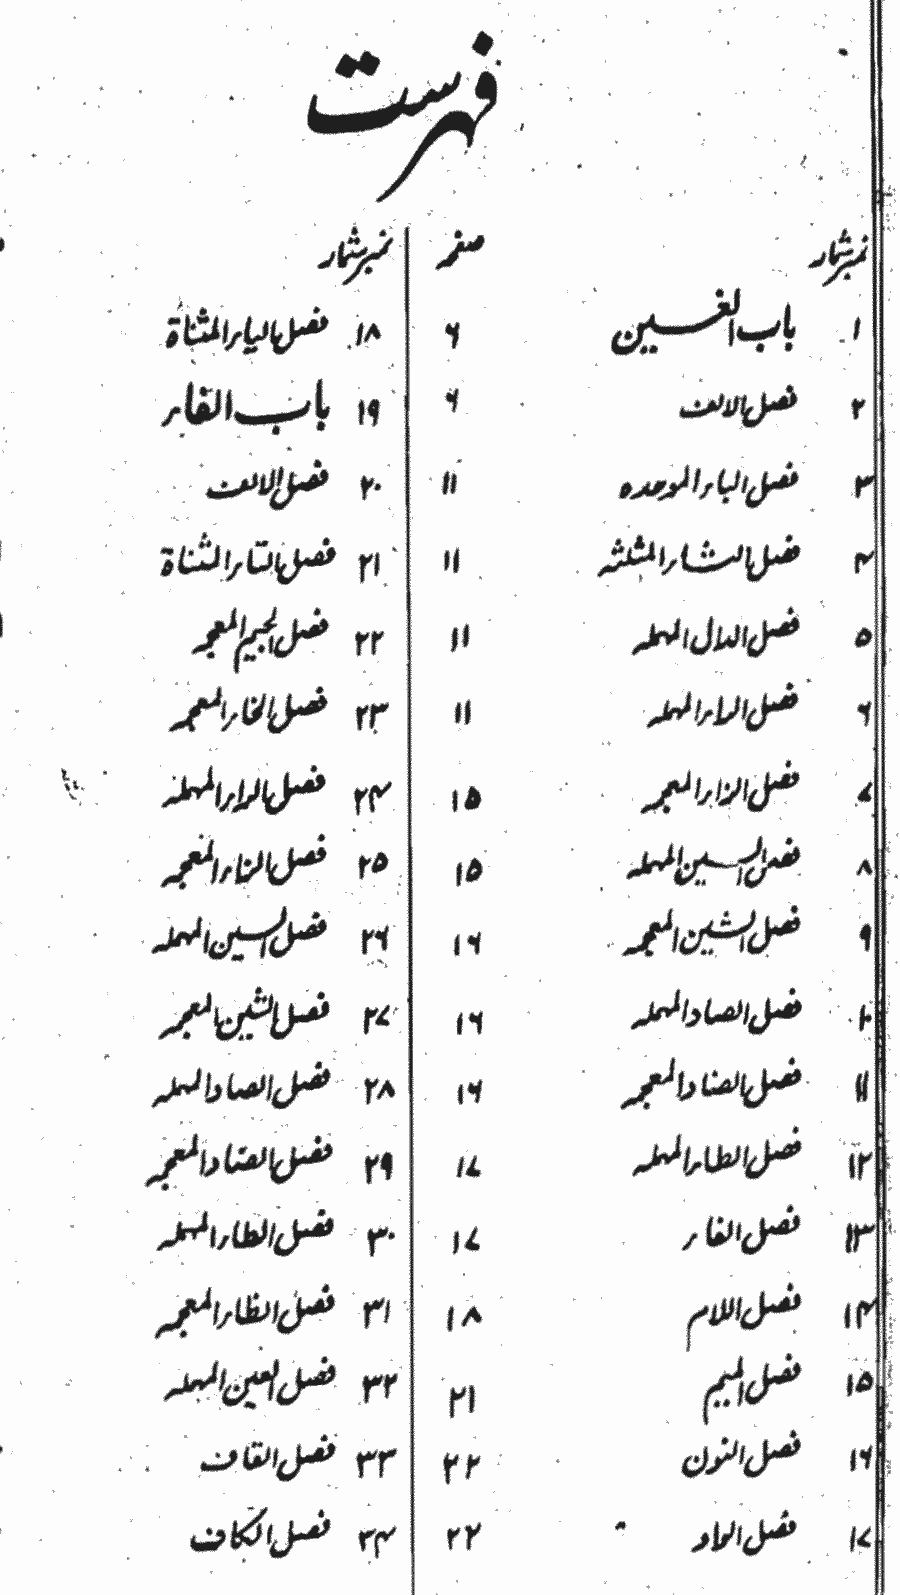 فہرست
نمبر شمار صفحہ
۱ باب الغین ۶
۲ فصل الالف ۶
۳ فصل الباء الموحدہ ۱۱
۴ فصل الثاء المثلثہ ۱۱
۵ فصل الدال المہملہ ۱۱
۶ فصل الراء المہملہ ۱۱
۷ فصل الزاء المعجمہ ۱۵
۸ فصل السین المہملہ ۱۵
۹ فصل الشین المعجمہ ۱۶
۱۰ فصل الصاد المہملہ ۱۶
۱۱ فصل الضاد المعجمہ ۱۶
۱۲ فصل الطاء المہملہ ۱۷
۱۳ فصل الفاء ۱۷
۱۴ فصل اللام ۱۸
۱۵ فصل المیم ۲۱
۱۶ فصل النون ۲۲
۱۷ فصل الواو ۲۲
نمبر شمار
۱۸ فصل الیاء المثناۃ
۱۹ باب الفاء
۲۰ فصل الالف
۲۱ فصل التاء المثناۃ
۲۲ فصل الجیم المعجمہ
۲۳ فصل الخاء المعجمہ
۲۴ فصل الراء المہملہ
۲۵ فصل الزاء المعجمہ
۲۶ فصل السین المہملہ
۲۷ فصل الشین المعجمہ
۲۸ فصل الصاد المہملہ
۲۹ فصل الضاد المعجمہ
۳۰ فصل الطاء المہملہ
۳۱ فصل الظاء المعجمہ
۳۲ فصل العین المہملہ
۳۳ فصل القاف
۳۴ فصل الکاف